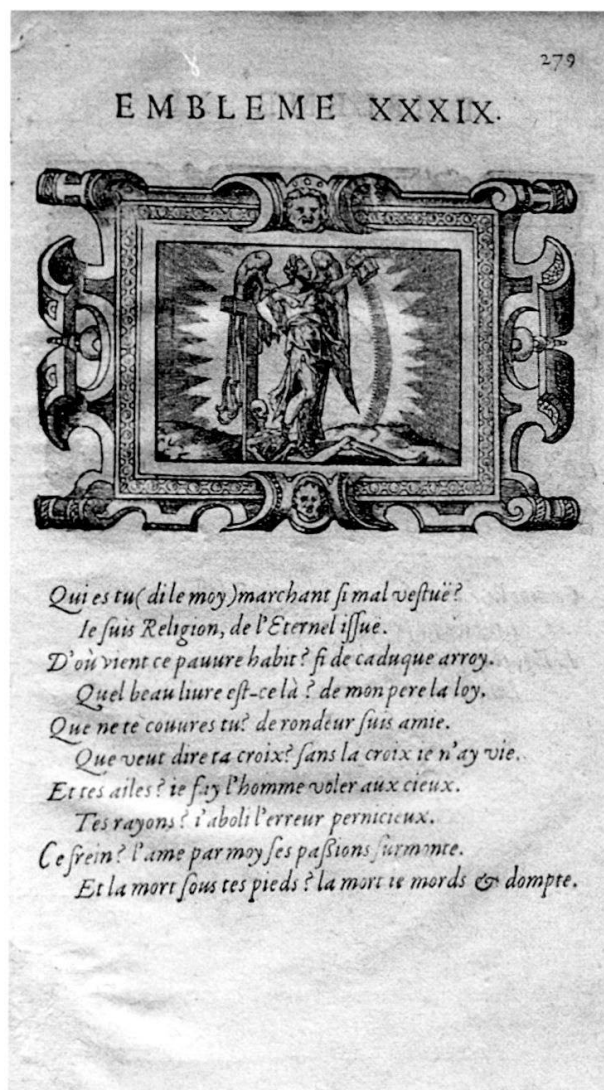 279
EMBLEME XXXIX.
Qui es tu (di le moy) marchant ſi mal veſtuë?
Ie ſuis Religion, de l'Eternel iſſuë.
D'où vient ce pauure habit? fi de caduque arroy.
Quel beau liure eſt-ce là? de mon pere la loy.
Que ne te couures tu? de rondeur ſuis amie.
Que veut dire ta croix? ſans la croix ie n'ay vie.
Et tes ailes? ie fay l'homme voler aux cieux.
Tes rayons? i'aboli l'erreur pernicieux.
Ce frein? l'ame par moy ſes paſsions ſurmonte.
Et la mort ſous tes pieds? la mort ie mords & dompte.